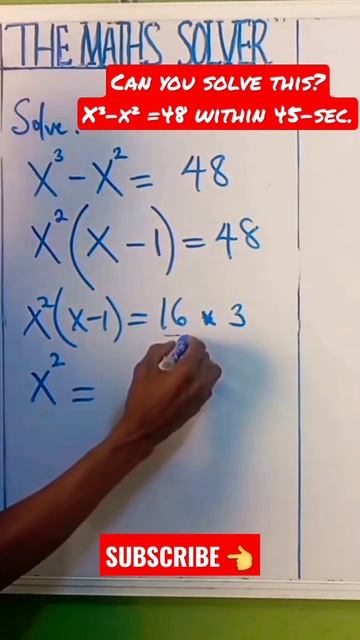 THE MATHS SOLVER
CAN YOU SOLVE THIS?
X³-X² =48 WITHIN 45-SEC.
Solve:
X³ - X² = 48
X²(X - 1) = 48
X²(X-1) = 16 * 3
X² =
SUBSCRIBE 👈